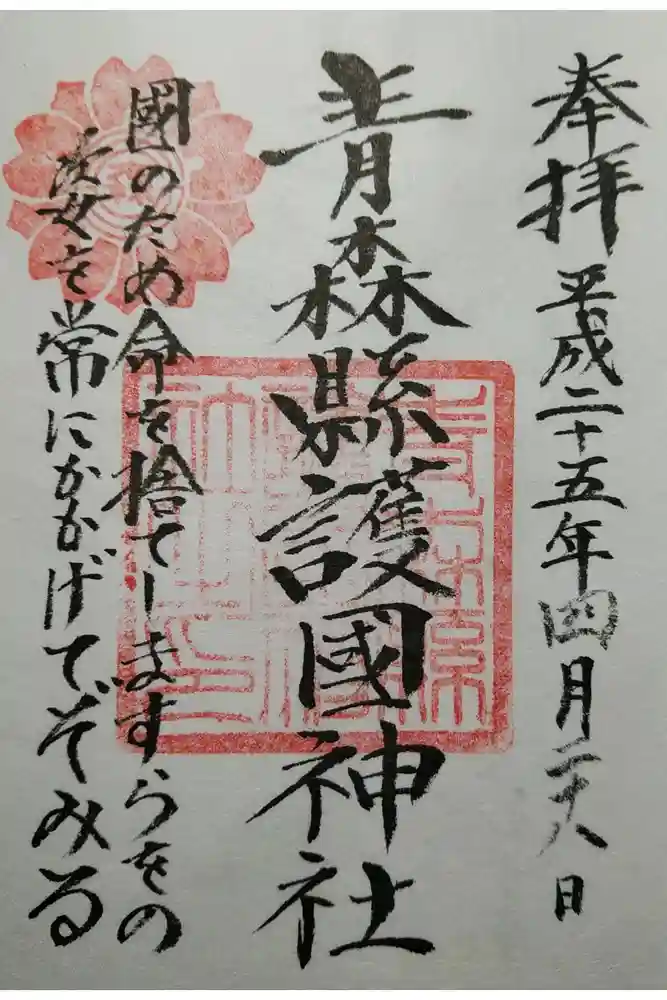 奉拝
平成二十五年四月二十八日
青森縣護國神社
國のため命を捨てしますらをの
姿を常にかかげてぞみる